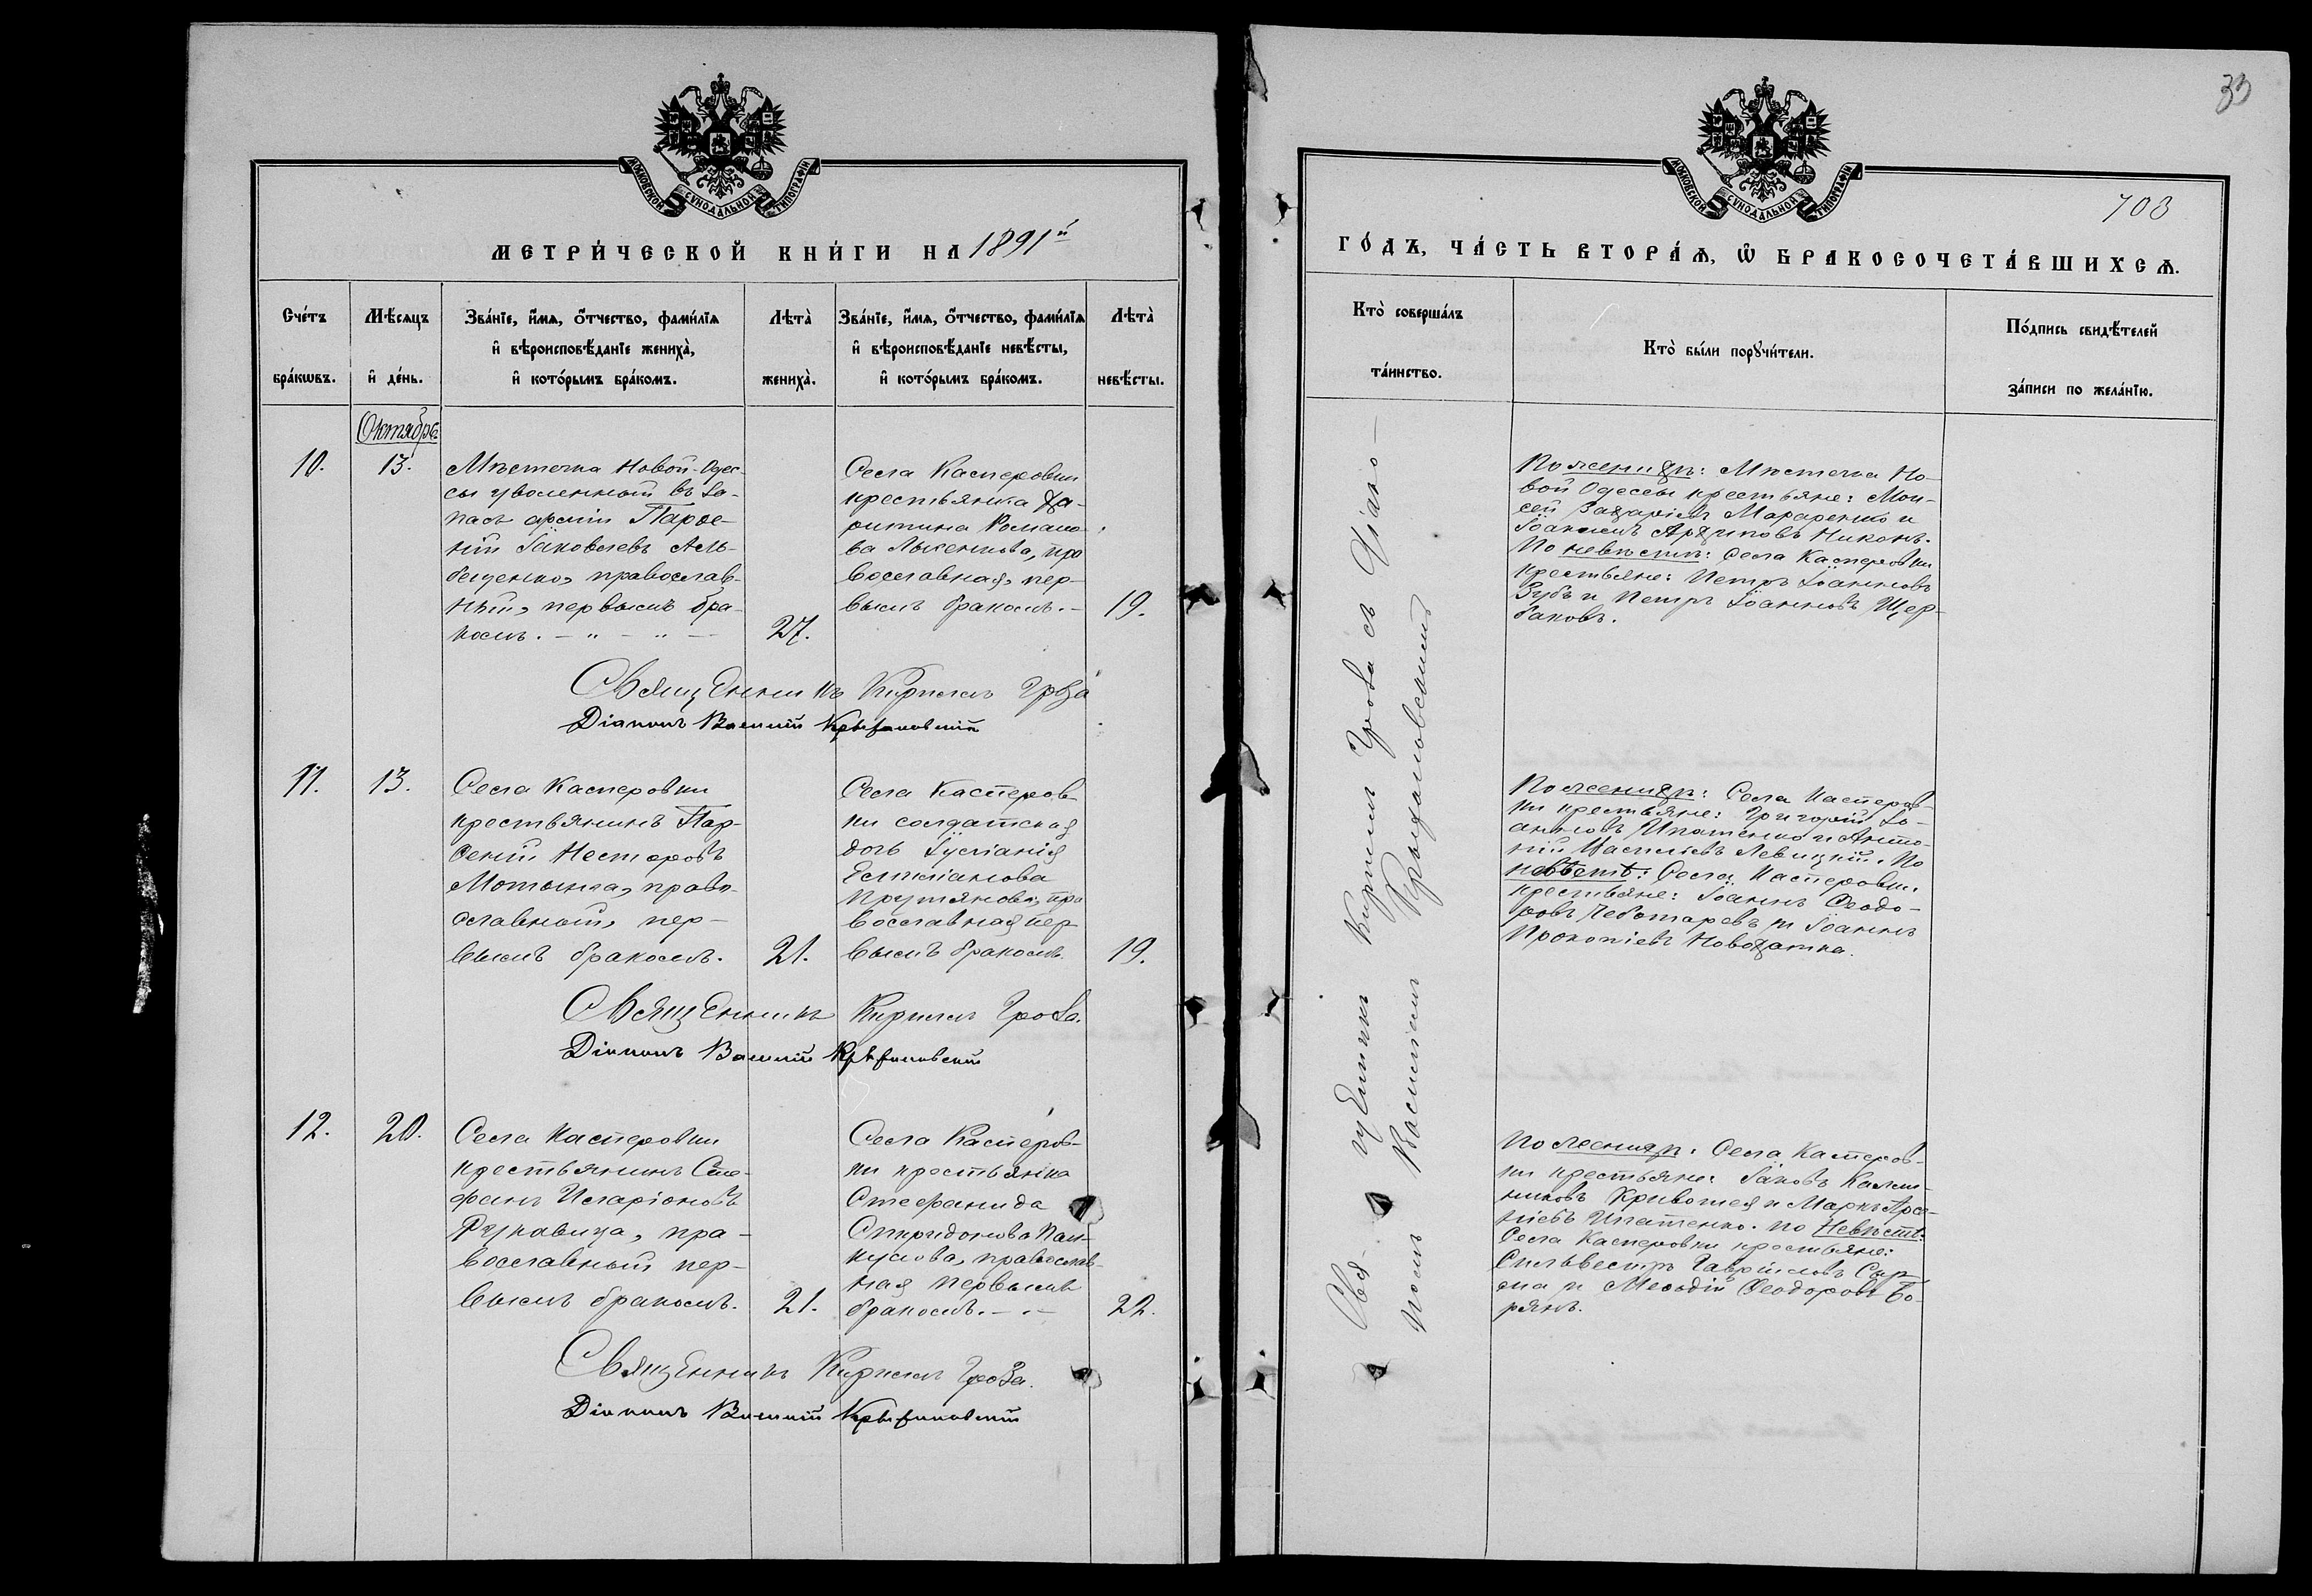 МОСКОВСКОЙ СѴНОДАЛЬНОЙ ТИПОГРАФІИ
МЕТРИ́ЧЕСКОЙ КНИ́ГИ НА 1891й
Сче́тъ бра́кѡвъ.
Мѣ́сяцъ и҆ де́нь.
Зва́нїе, и҆́мѧ, о҆́тчество, фами́лїѧ
и҆ вѣроисповѣ́данїе жениха̀,
и҆ кото́рымъ бра́комъ.
Лѣта̀ жениха̀.
Зва́нїе, и҆́мѧ, о҆́тчество, фами́лїѧ
и҆ вѣроисповѣ́данїе невѣ́сты,
и҆ кото́рымъ бра́комъ.
Лѣта̀ невѣ́сты.
Октября
10.
13.
Мѣстечка Новой-Одес-
сы уволенный въ За-
пасъ арміи Парѳе-
ній Іаковлевъ
православ-
ный, первымъ бра-
комъ.
27.
Села Касперовки
крестьянка Ха-
ритина Романо-
ва Лысенкова, пра
вославная, пер-
вымъ бракомъ.
19.
Священникъ Кириллъ Гроза
Діаконъ Василій Крыжановскій
11.
13.
Села Касперовки
крестьянинъ Пар-
ѳеній Несторовъ
право-
славный, пер-
вымъ бракомъ.
21.
Села Касперов-
ки солдатская
дочь Іуліанія
Емиліанова
пра
вославная пер
вымъ бракомъ.
19.
Священникъ Кириллъ Гроза.
Діаконъ Василій Крыжановскій
12.
20.
Села Касперовки
крестьянинъ Сте-
фанъ Иларіоновъ
Рукавица, пра-
вославный пер-
вымъ бракомъ.
21.
Села Касперов-
ки крестьянка
Стефанида
Спиридонова
православ-
ная первымъ
бракомъ.
22.
Священникъ Кириллъ Гроза.
Діаконъ Василій Крыжановскій
33
МОСКОВСКОЙ СѴНОДАЛЬНОЙ ТИПОГРАФІИ
703
ГО́ДЪ, ЧА́СТЬ ВТОРА́Ѧ, Ѽ БРАКОСОЧЕТА́ВШИХСѦ.
Кто̀ соверша́лъ та́инство.
Кто̀ бы́ли порꙋчи́тели.
По́дпись свидѣ́телей за́писи по жела́нїю.
Священникъ Кириллъ Гроза съ Діако-
номъ Василіемъ Крыжановскимъ
По женихѣ: Мѣстечка Но-
вой Одессы крестьяне: Мои-
сей Захаріевъ Макаренко и
Іоакимъ Архиповъ Никонъ.
По невѣстѣ: Села Касперовки
крестьяне: Петръ Іоанновъ
Зубъ и Петръ Іоанновъ Щер-
баковъ.
По женихѣ: Села Касперов-
ки крестьяне: Григорій Іо-
анновъ Игнатенко и Анто-
ній Васильевъ Левицкій. По
невѣстѣ: Села Касперовки
крестьяне: Іоаннъ Ѳеодо-
ровъ Чеботаревъ и Іоаннъ
Прокопіевъ Новохатка.
По женихѣ: Села Касперов-
ки крестьяне: Іаковъ
и Маркъ Арсе-
ніевъ Игнатенко. По Невѣстѣ:
Села Касперовки крестьяне:
Сильвестръ Гавріиловъ
и Меѳодій Ѳеодоровъ